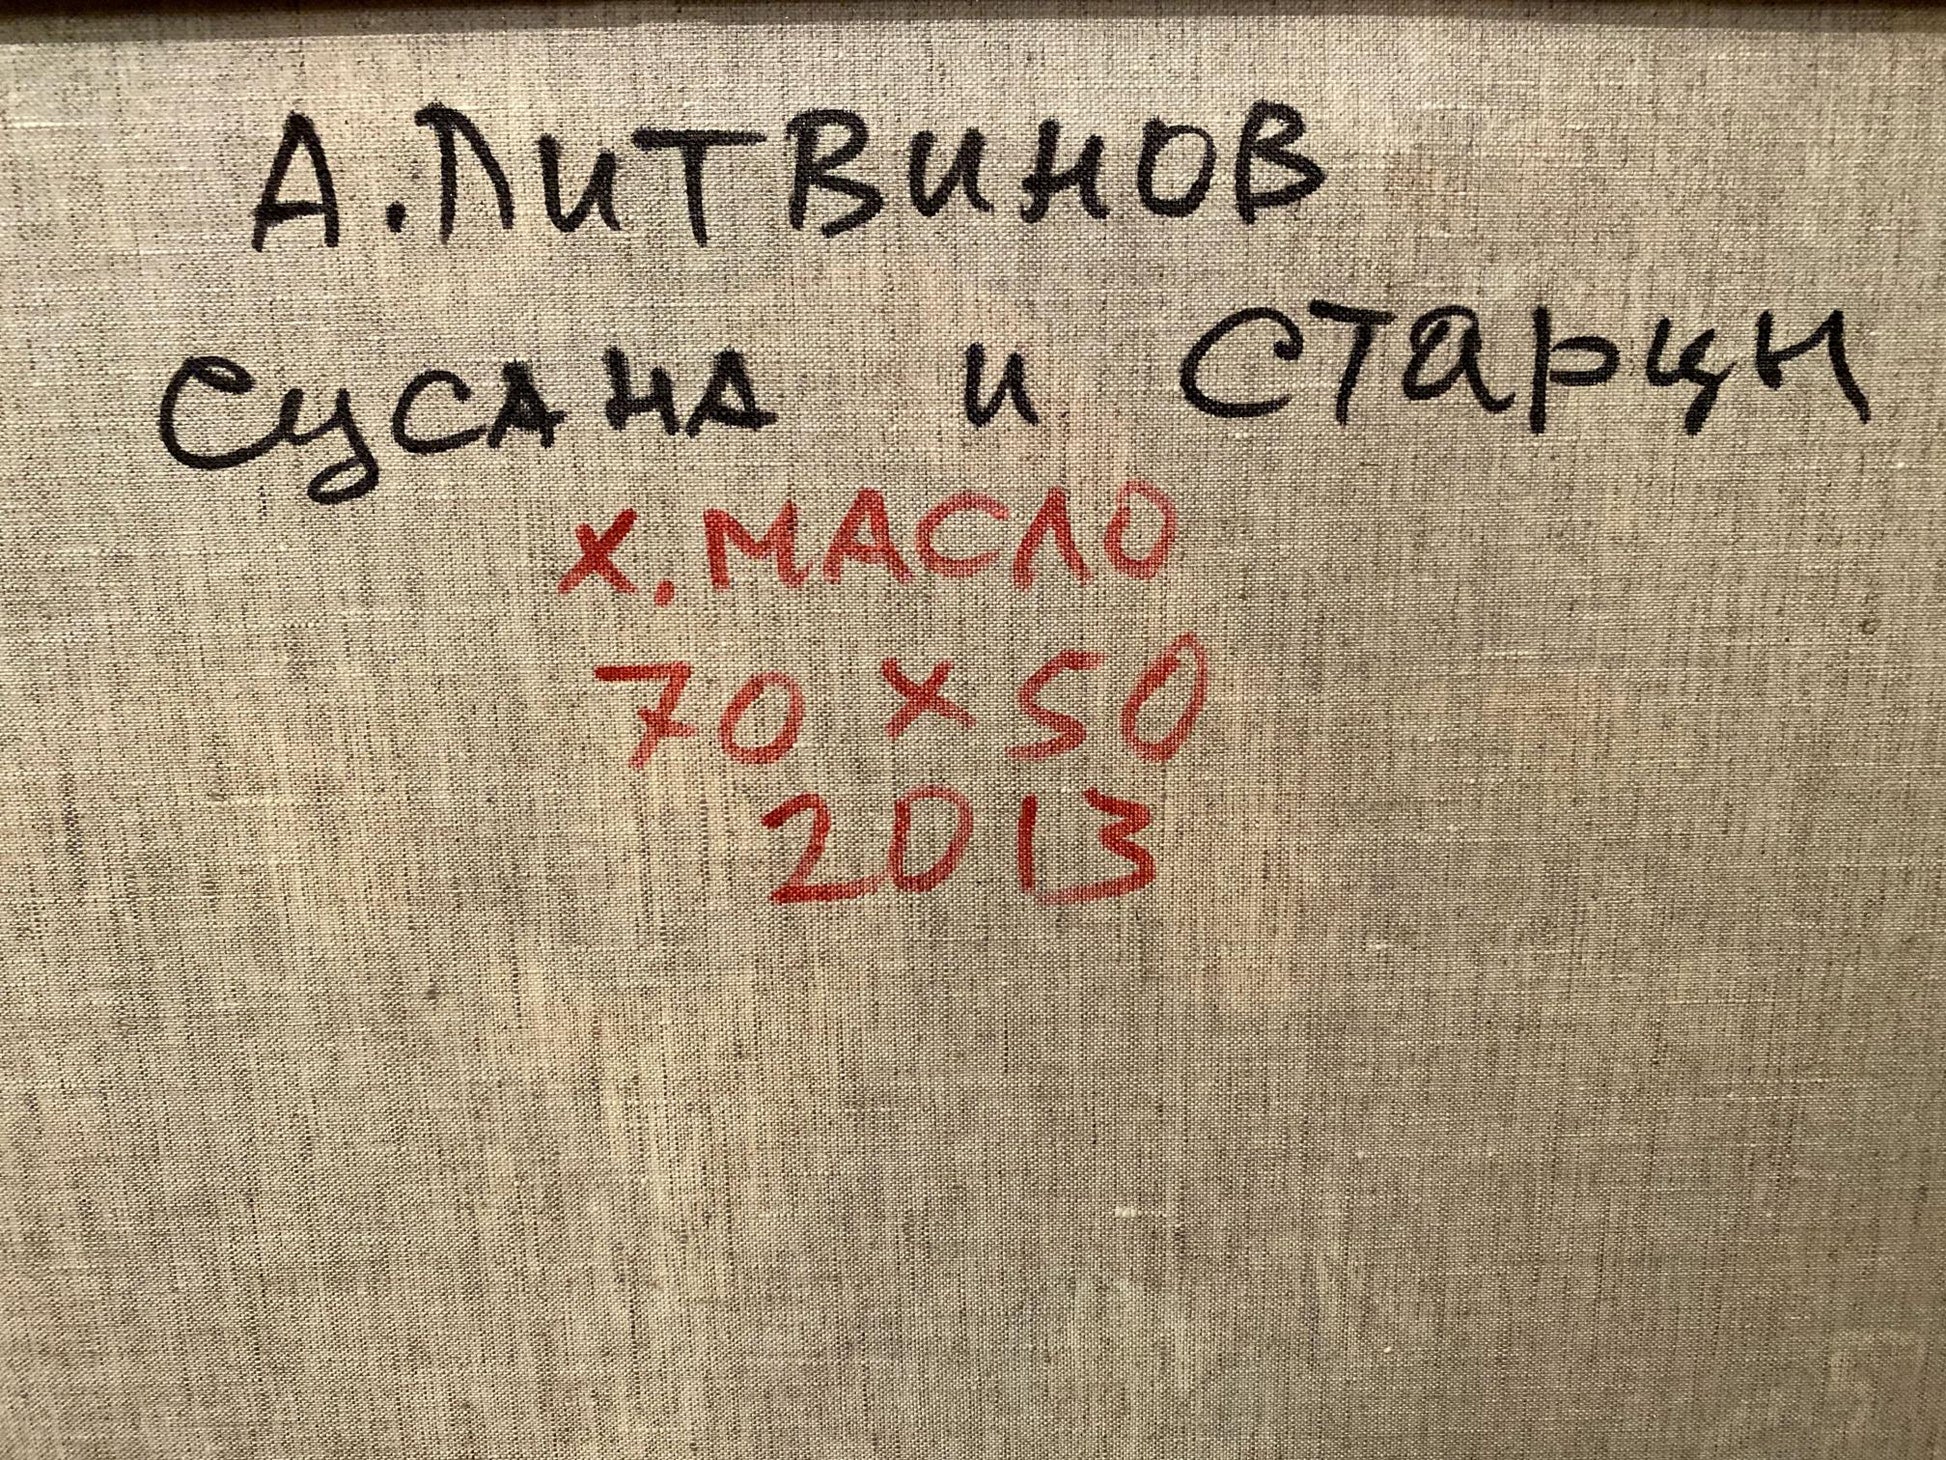 А. Литвинов
Сусана и старцы
х. масло
70 х 50
2013